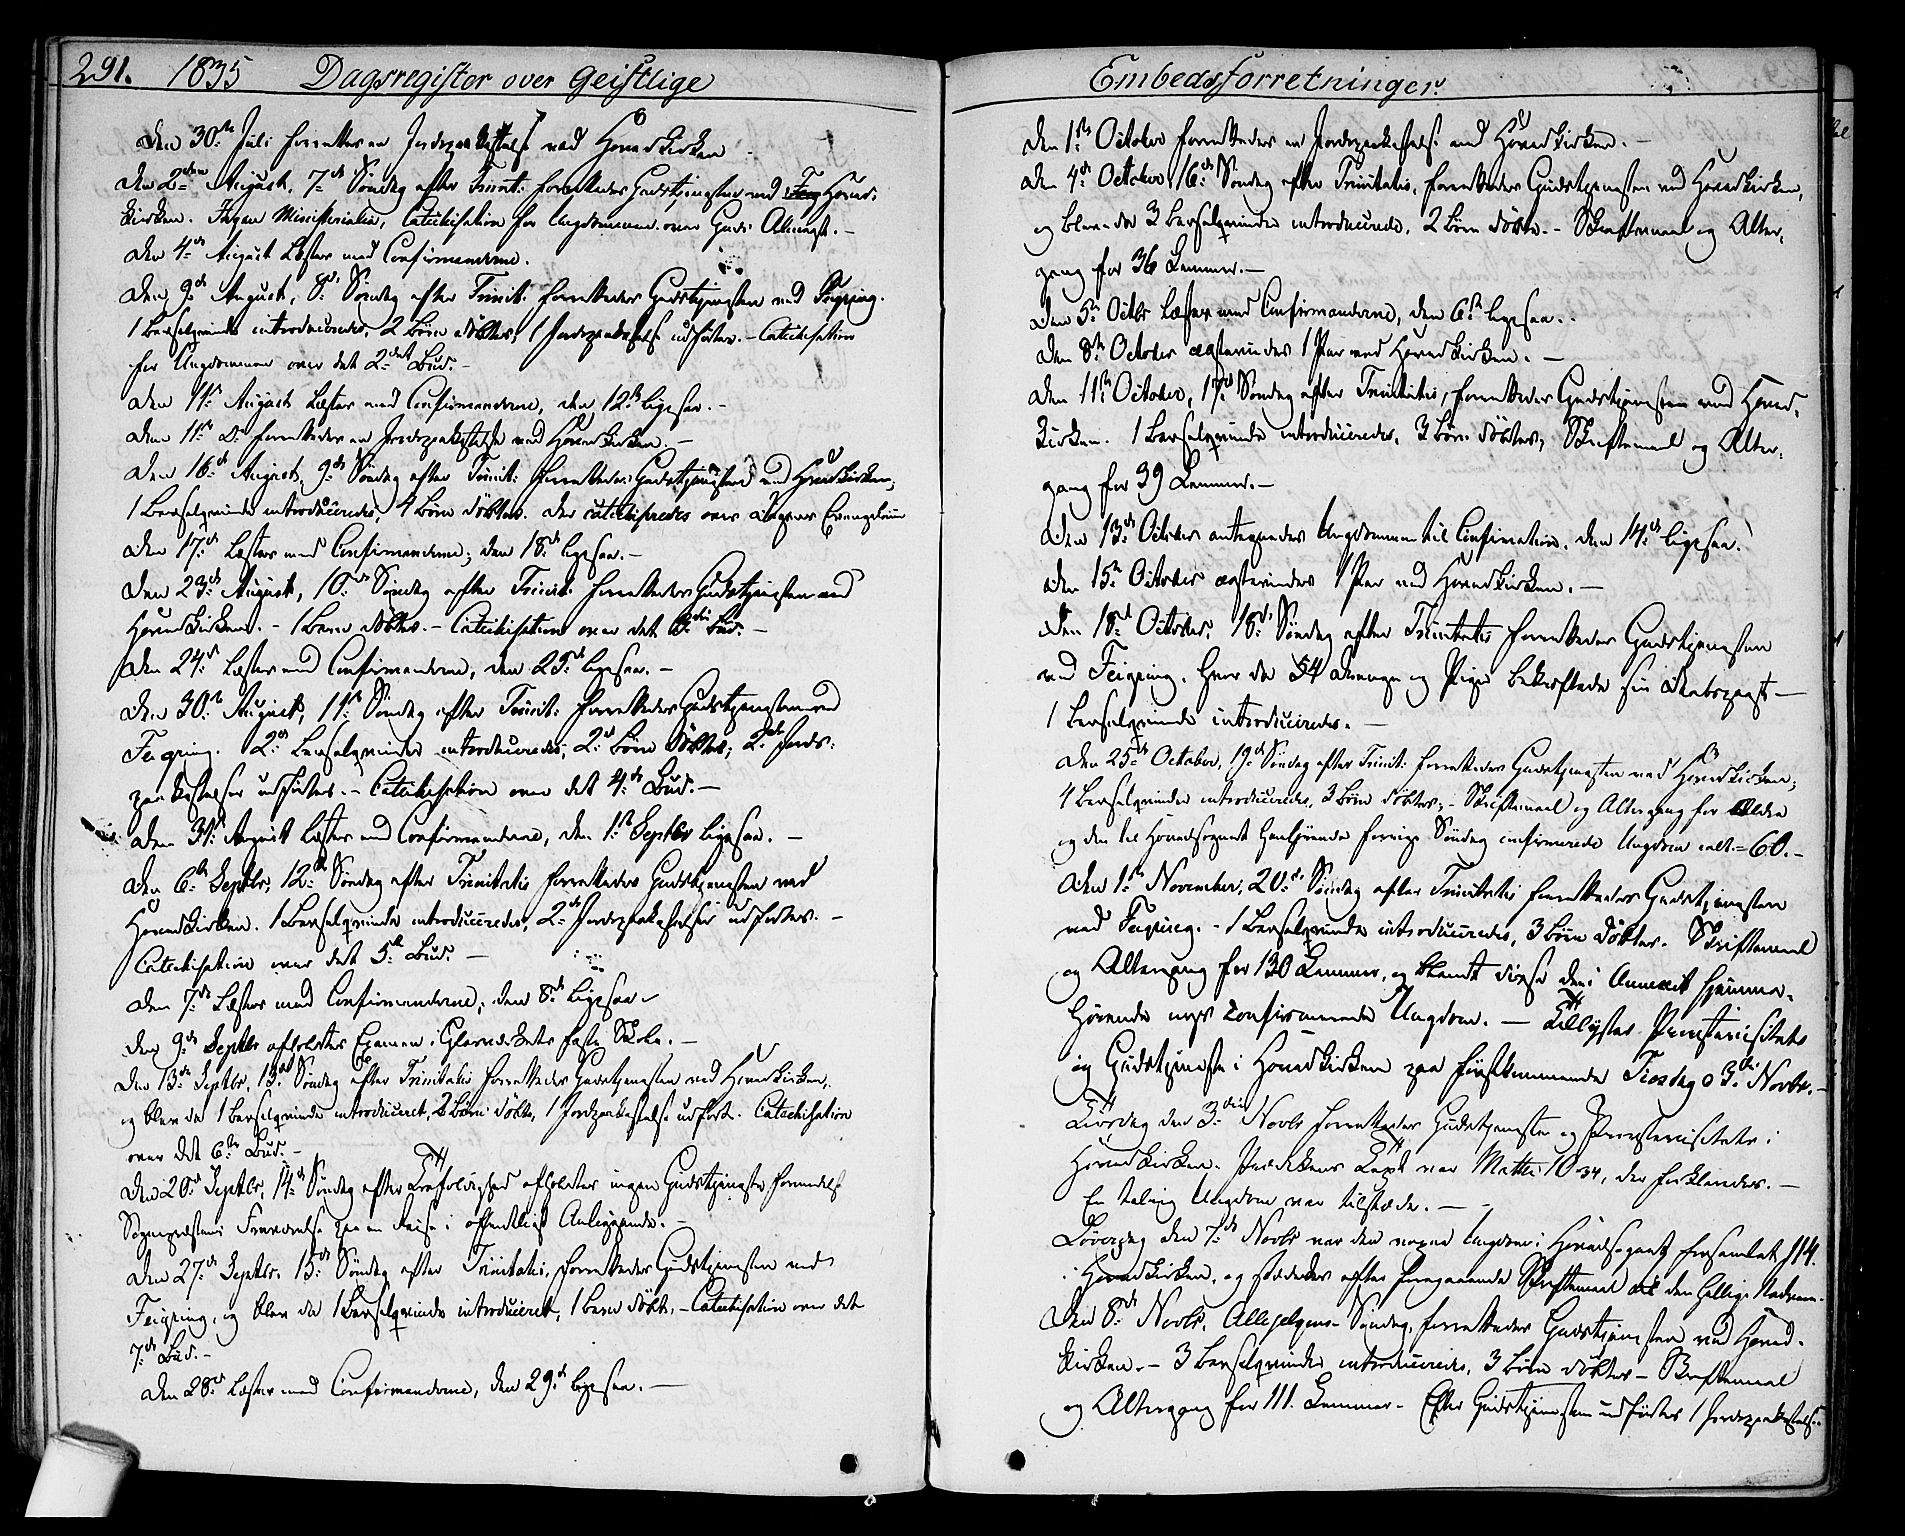 291. 1835 Dagsregister over Geistlige
Den 30te Juli forrettedes en Jordpaakastelse ved Hovedkirken
Den 2den August, 7de Søndag efter Trinit: forrettedes Gudstjenesten ved Hoved-
kirken. Ingen Ministerialia, Catechisation for Ungdommen over Guds Almagt. -
Den 4de August Læstes med Confirmanderne.
Den 9de August, 8de Søndag efter Trinit: forrettedes Gudstjenesten ved Feigring.
1 Barselqvinde introduceredes, 2 Børn døbtes, 1 Jordpaakastelse udførtes. - Catechisation
for Ungdommen over det 2det Bud. -
Den 11te August Læstes med Confirmanderne, den 12te ligesaa. -
Den 11te D: forrettedes en Jordpaakastelse ved Hovedkirken. -
Den 16de August, 9de Søndag efter Trinit: forrettedes Gudstjenesten ved Hovedkirken;
1 Barselqvinde introduceredes, 4 Børn døbtes. Der catechiseredes over Dagens Evangelium
Den 17de Læstes med Confirmanderne; den 18de ligesaa. -
Den 23de August, 10de Søndag efter Trinit: forrettedes Gudstjenesten ved
Hovedkirken. - 1 Barn døbtes. - Catechisation over det 3die Bud. -
Den 24de Læstes med Confirmanderne, den 25de ligesaa. -
Den 30te August, 11te Søndag efter Trinit: forrettedes Gudstjenesten ved
Feigring. 2de Barselqvinder introduceredes; 2de Børn døbtes; 2de Jord-
paakastelser udførtes. - Catechisation over det 4de Bud. -
Den 31te August Læstes med Confirmanderne, den 1ste Septbr ligesaa. -
Den 6te Septbr, 12te Søndag efter Trinitatis forrettedes Gudstjenesten ved
Hovedkirken. 1 Barselqvinde introduceredes, 2de Jordpaakastelser udførtes. -
Catechisation over det 5te Bud. -
Den 7de Læstes med Confirmanderne; den 8de ligesaa -
Den 9de Septbr afholdtes Examen i faste Skole. -
Den 13de Septbr, 13de Søndag efter Trinitatis forrettedes Gudstjenesten ved Hovedkirken,
og blev da 1 Barselqvinde introduceret, 2 Børn døbte, 1 Jordpaakastelse udført. Catechisation
over det 6te Bud. -
Den 20de Septbr, 14de Søndag efter Trefoldighed afholdtes ingen Gudstjeneste formedelst
Sognepræstens Fraværelse paa en Reise i offentligt Anliggende. -
Den 27de Septbr, 15de Søndag efter Trinitatis, forrettedes Gudstjenesten ved
Feigring, og blev da 1 Barselqvinde introduceret, 1 Barn døbt, - Catechisation over det
7de Bud. -
Den 28de Læstes med Confirmanderne, den 29de ligesaa. -
Embedsforretninger.
Den 1ste October forrettedes en Jordpaakastelse ved Hovedkirken. -
Den 4de October, 16de Søndag efter Trinitatis, forrettedes Gudstjenesten ved Hovedkirken,
og bleve da 3 Barselqvinder introducerede, 2 Børn døbte. - Skriftemaal og Alter-
gang for 36 Lemmer. -
Den 5te Octbr Læstes med Confirmanderne, den 6te ligesaa. -
Den 8de October ægteviedes 1 Par ved Hovedkirken. -
Den 11te October, 17de Søndag efter Trinitatis, forrettedes Gudstjenesten ved Hoved-
kirken. 1 Barselqvinde introduceredes, 3 Børn døbtes, Skriftemaal og Alter-
gang for 39 Lemmer. -
Den 13de October antegnedes Ungdommen til Confirmation, den 14de ligesaa.
Den 15de October ægteviedes 1 Par ved Hovedkirken. -
Den 18de October, 18de Søndag efter Trinitatis forrettedes Gudstjenesten
ved Feigring, hvor da 54 Drenge og Piger bekræftede sin Daabspagt -
1 Barselqvinde introduceredes. -
Den 25de October, 19de Søndag efter Trinit: forrettedes Gudstjenesten ved Hovedkirken;
4 Barselqvinder introduceredes, 3 Børn døbtes; - Skriftemaal og Altergang for Ældre
og den til Hovedsognet henhørende forrige Søndag confirmerede Ungdom ialt = 60. -
Den 1ste November, 20de Søndag efter Trinitatis forrettedes Gudstjenesten
ved Feigring. - 1 Barselqvinde introduceredes, 3 Børn døbtes. Skriftemaal
og Altergang for 130 Lemmer, og blandt disse den i Annexet hjemme-
hørende nys confirmerede Ungdom. - Tillystes Provstevisitats
og Gudstjeneste i Hovedkirken paa førstkommende Tirsdag 3die Novbr. -
Tirsdag den 3die Novbr forrettedes Gudstjeneste og Provstevisitats i
Hovedkirken. Prædikens Text var Matth: 10 34, der forklaredes. -
En talrig Ungdom var tilstæde. -
Løverdag den 7de Novbr var den voxne Ungdom i Hovedsognet forsamlet 114.
i Hovedkirken, og stededes efter foregaaende Skriftemaal til den hellige Nadvere.
Den 8de Novbr, Allehelgens-Søndag, forrettedes Gudstjenesten ved Hoved-
kirken. - 3 Barselqvinder introduceredes, 3 Børn døbtes - Skriftemaal
og Altergang for 111. Lemmer - Efter Gudstjenesten udførtes 1 Jordpaakastelse